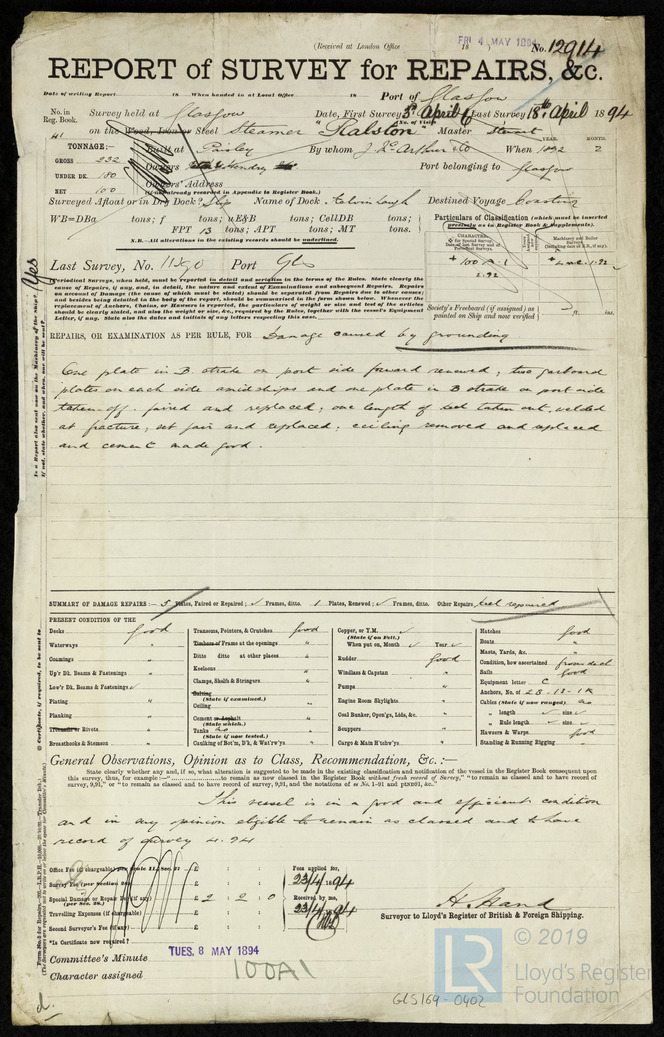 (Received at London Office
FRI. 4 MAY 1894
18 ) No. 12914
REPORT of SURVEY for REPAIRS, &c.
Date of writing Report 18 When handed in at Local Office 18 Port of Glasgow
No. in Reg. Book. Survey held at Glasgow Date, First Survey 5th April Last Survey 18th April 1894
No. of Visits 6
41 on the Wood, Iron or Steel Steamer "Ralston" Master Stewart
TONNAGE: Built at Paisley By whom J. McArthur & Co When 1892 2
YEAR. MONTH.
GROSS 232
UNDER DK. 180
NET 100
Owners Hendry Port belonging to Glasgow
Owners' Address
(if not already recorded in Appendix to Register Book.)
Surveyed Afloat or in Dry Dock? Slip Name of Dock. Kelvinhaugh Destined Voyage Coasting
WB=DBa tons; f tons; uE&B tons; CellDB tons;
FPT 13 tons; APT tons; MT tons.
N.B.—All alterations in the existing records should be underlined.
Particulars of Classification (which must be inserted precisely as in Register Book & Supplements).
CHARACTER.
+ 100 A.1
2.92
+ LMC 1.92
Society's Freeboard (if assigned) as painted on Ship and now verified ft. ins.
Last Survey, No. Port Gls
Periodical Surveys, when held, must be reported in detail and seriatim in the terms of the Rules. State clearly the
cause of Repairs, if any, and, in detail, the nature and extent of Examinations and subsequent Repairs. Repairs
on account of Damage (the cause of which must be stated) should be separated from Repairs due to other causes;
and besides being detailed in the body of the report, should be summarised in the form shown below. Whenever the
replacement of Anchors, Chains, or Hawsers is reported, the particulars of weight or size and test of the articles
should be clearly stated, and also the weight or size, &c., required by the Rules, together with the vessel's Equipment
Letter, if any. State also the dates and initials of any letters respecting this case.
REPAIRS, OR EXAMINATION AS PER RULE, FOR Damage caused by grounding
One plate in B. strake on port side forward renewed; two garboard
plates on each side amidships and one plate in B strake on port side
taken off. faired and replaced; one length of keel taken out, welded
at fracture, set fair and replaced; ceiling removed and replaced
and cement made good.
Is a Report also sent now on the Machinery of the ship? Yes
If not, state whether, and when, one will be sent?
SUMMARY OF DAMAGE REPAIRS:— 5 Plates, Faired or Repaired; ✓ Frames, ditto. 1 Plates, Renewed; ✓ Frames, ditto. Other Repairs, keel repaired
PRESENT CONDITION OF THE
Decks good
Waterways "
Coamings "
Up'r Dk. Beams & Fastenings "
Low'r Dk. Beams & Fastenings ✓
Plating "
Planking
Treenails or Rivets. "
Breasthooks & Stemson "
Transoms, Pointers, & Crutches good
Timbers or Frame at the openings "
Ditto ditto at other places "
Keelsons "
Clamps, Shelfs & Stringers "
Salting
(State if examined.)
Ceiling "
Cement or Asphalt "
(State which.)
Tanks no
(State if now tested.)
Caulking of Bot'm, D'k, & Wat'rw'ys "
Copper, or Y.M. ✓
(State if on Felt.)
When put on, Month ✓ Year ✓
Rudder good
Windlass & Capstan "
Pumps "
Engine Room Skylights "
Coal Bunker, Open'gs, Lids, &c. "
Scuppers "
Cargo & Main H'tchw'ys "
Hatches good
Boats "
Masts, Yards, &c. "
Condition, how ascertained from deck
Sails good
Equipment letter C
Anchors, No. of 2B - 1S - 1K
Cables (State if now ranged) no
" length ✓ size ✓
" Rule length ✓ size ✓
Hawsers & Warps good
Standing & Running Rigging "
General Observations, Opinion as to Class, Recommendation, &c.:—
State clearly whether any and, if so, what alteration is suggested to be made in the existing classification and notification of the vessel in the Register Book consequent upon
this survey, thus, for example:—" to remain as now classed in the Register Book without fresh record of Survey," "to remain as classed and to have record of
survey, 9,91," or "to remain as classed and to have record of survey, 9,91, and the notations of ss No. 1-91 and ptND91, &c."
This vessel is in a good and efficient condition
and in my opinion eligible to remain as classed and to have
record of survey 4.94
Office Fee (if chargeable) per Scale II., Sec. 21 £ : :
Survey Fee (per Section 28) £ : :
Special Damage or Repair Fee (if any) (per Sec. 28.) £ 2 : 2 : 0
Travelling Expenses (if chargeable) £ : :
Second Surveyor's Fee (if any) £ : :
Fees applied for,
23/4/1894
Received by me,
23/4/94
H. Hand
Surveyor to Lloyd's Register of British & Foreign Shipping.
*Is Certificate now required?
Committee's Minute TUES. 8 MAY 1894
Character assigned 100A1
GLS169-0402
LR
© 2019
Lloyd's Register
Foundation